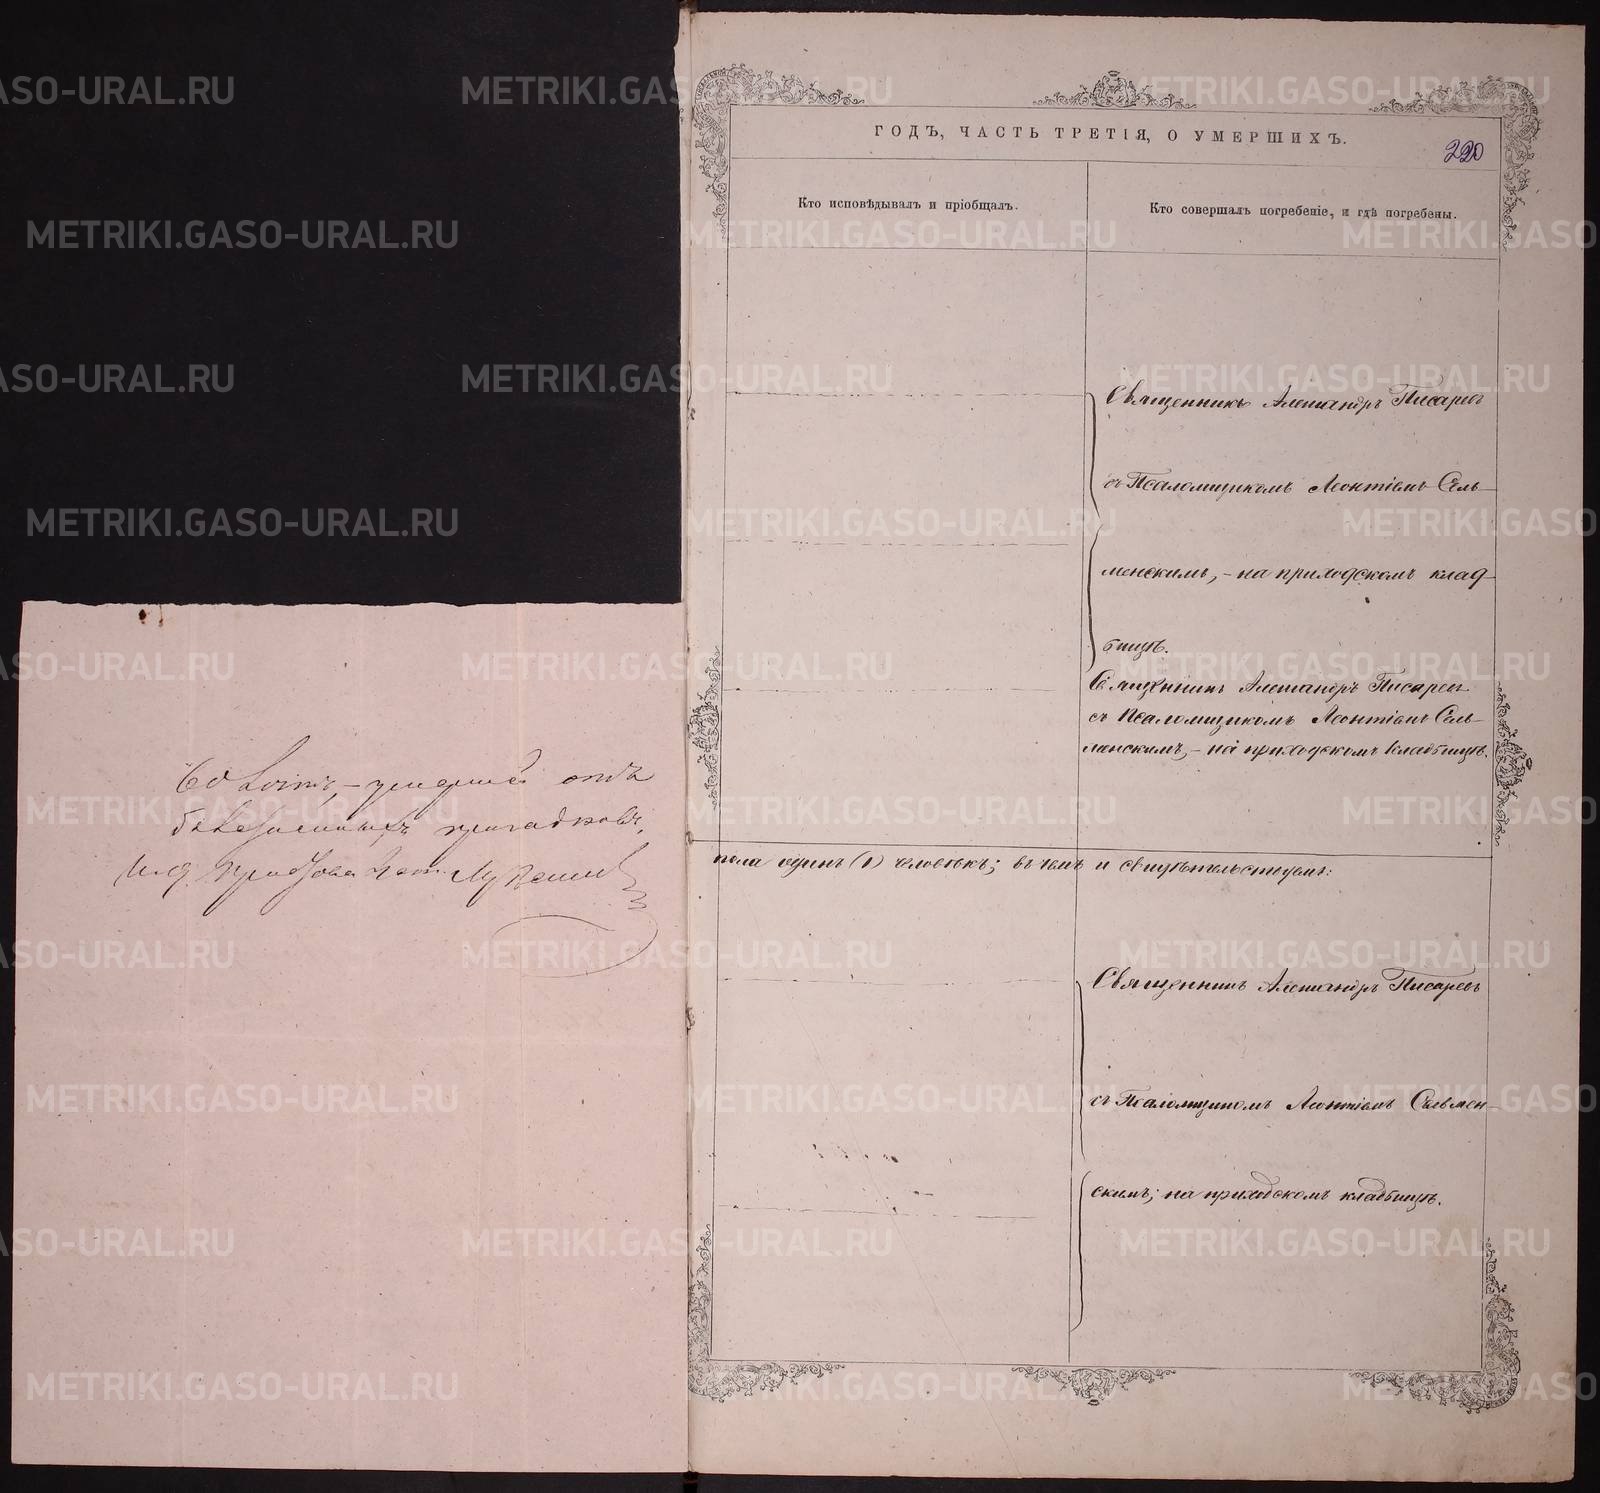 ГОДЪ, ЧАСТЬ ТРЕТІЯ, О УМЕРШИХЪ.
220
Кто исповѣдывалъ и пріобщалъ.
Кто совершалъ погребеніе, и гдѣ погребены.
Священникъ Александръ Писаревъ
съ Псаломщикомъ Леонтіемъ Сель-
менскимъ, - на приходскомъ клад-
бищѣ.
Священникъ Александръ Писаревъ
съ Псаломщикомъ Леонтіемъ Сель-
менскимъ, - на приходскомъ кладбищѣ.
пола одинъ (1) человѣкъ; въ чемъ и свидѣтельствуемъ:
Священникъ Александръ Писаревъ
съ Псаломщикомъ Леонтіемъ Сельмен-
скимъ; на приходскомъ кладбищѣ.
умершей отъ
болезненныхъ припадковъ,
И. д.
METRIKI.GASO-URAL.RU